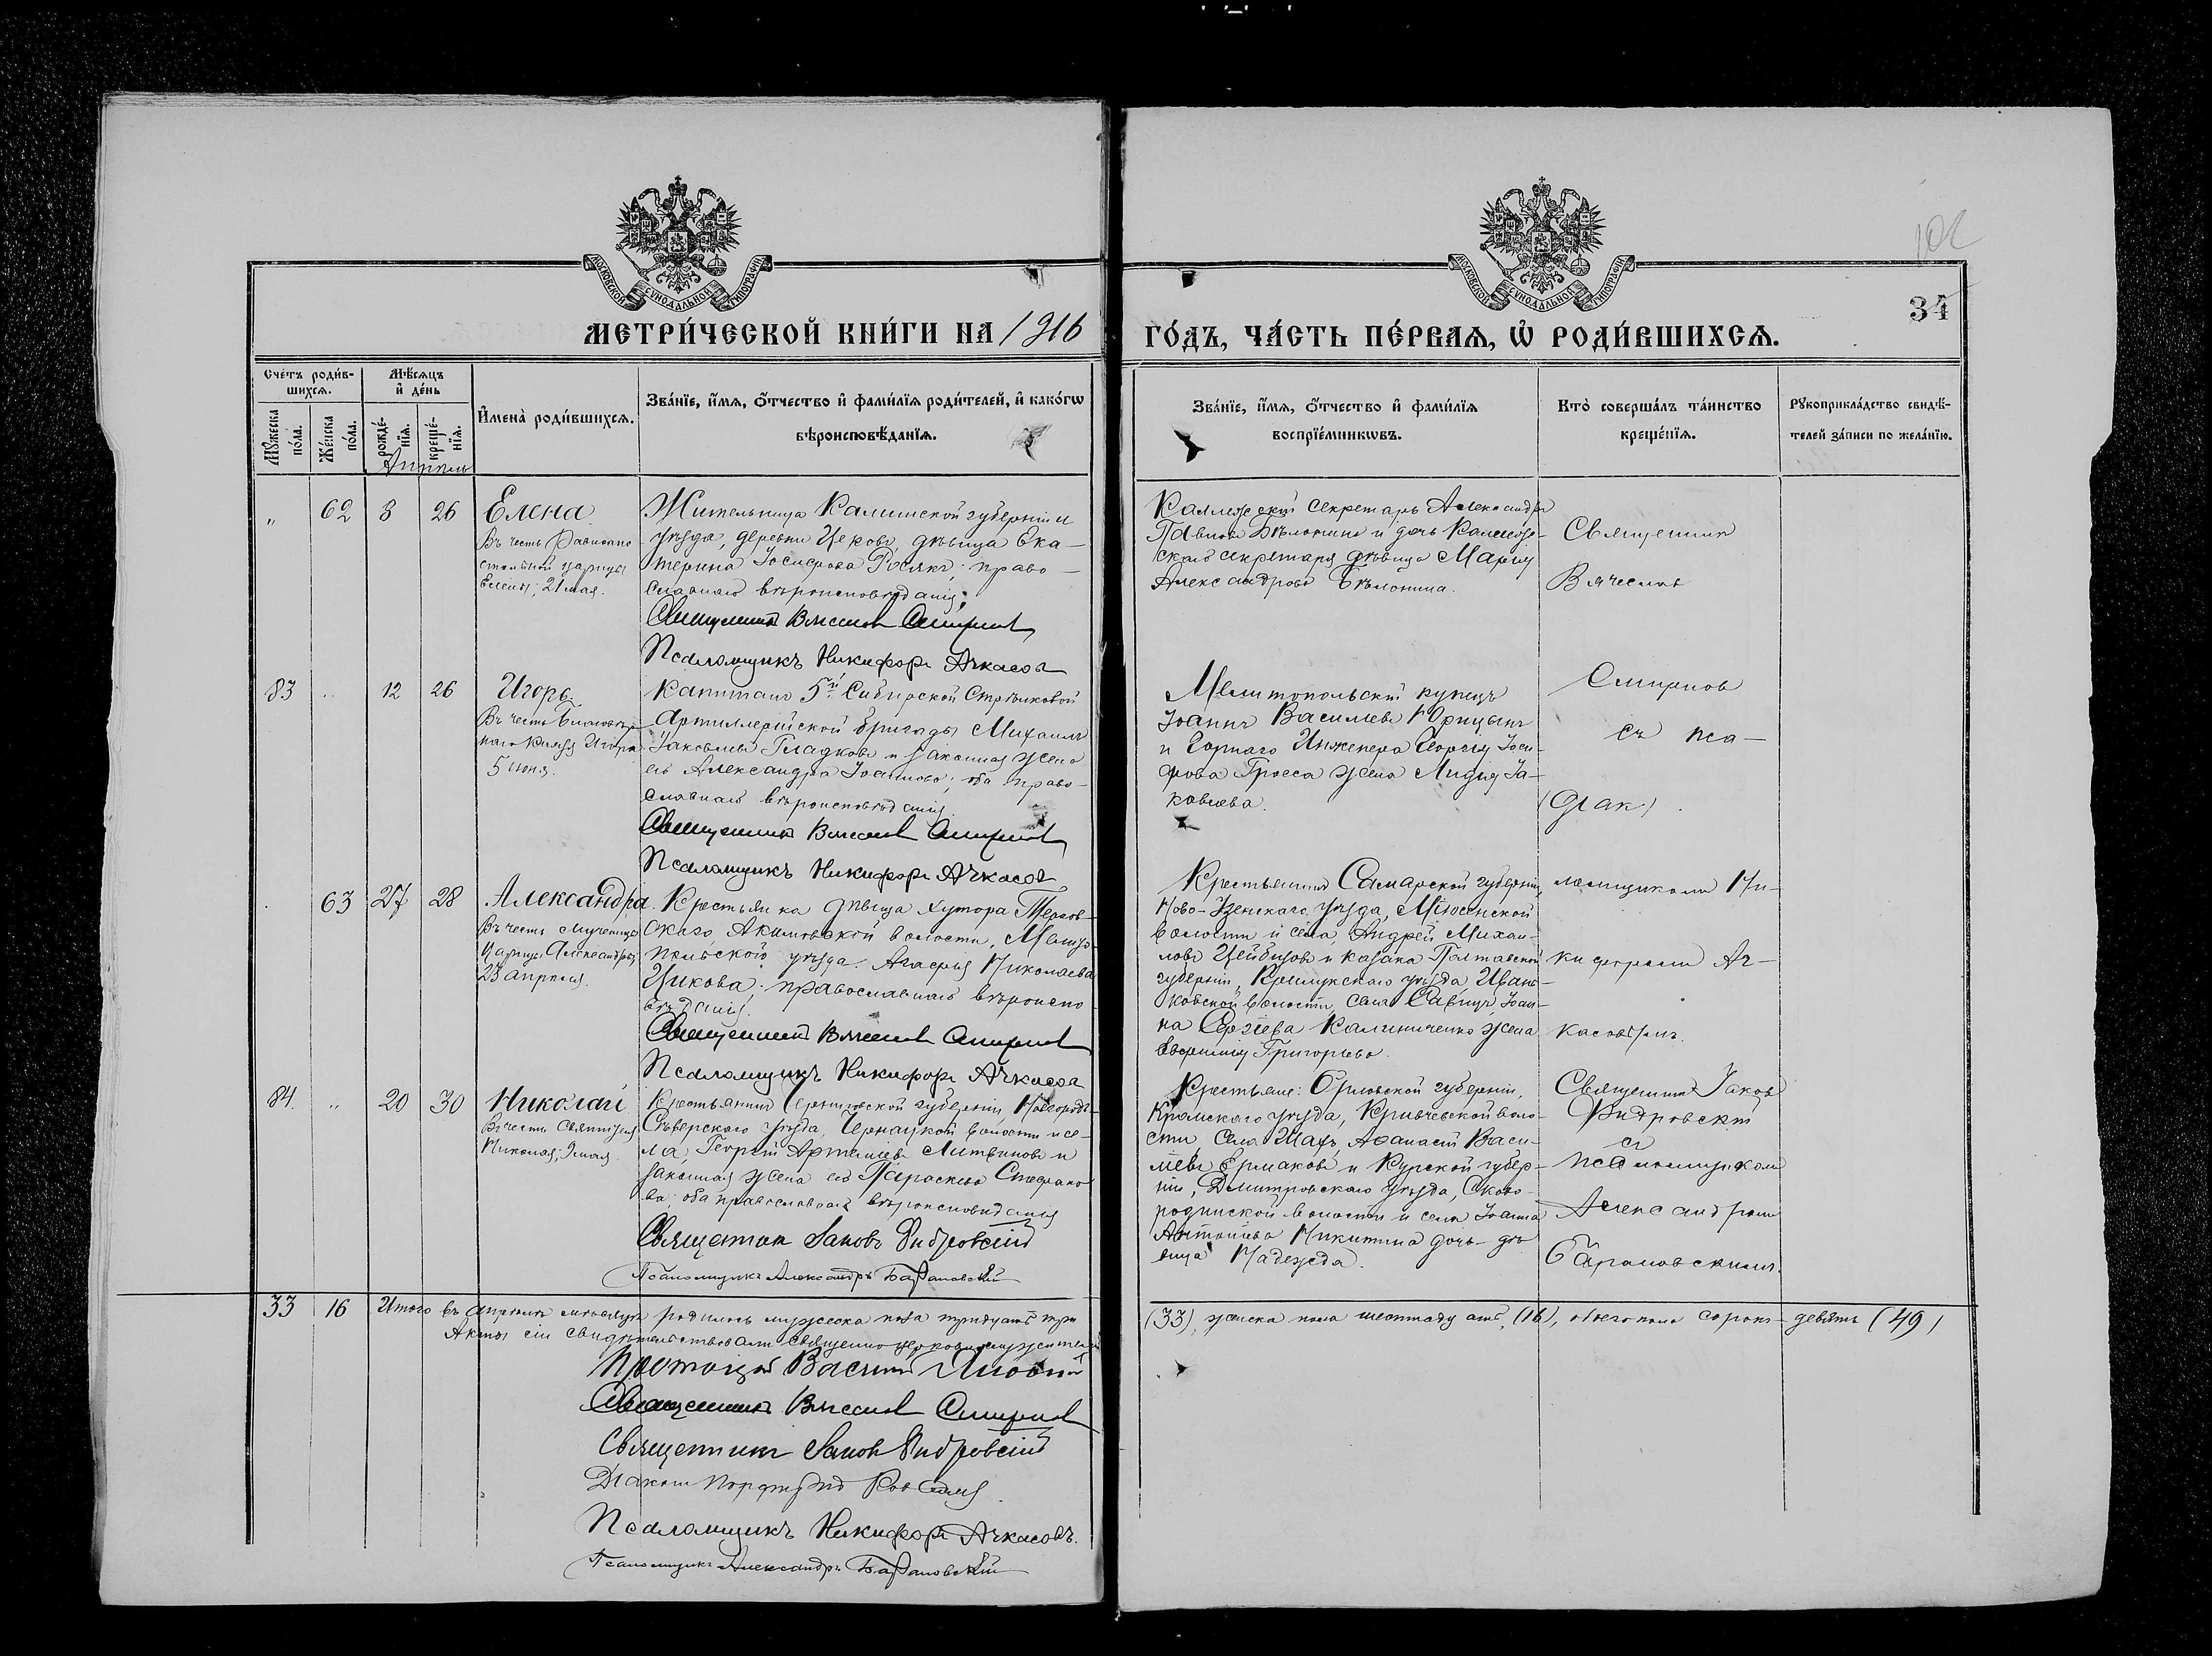 102
34
МОСКОВСКОЙ СѴНОДАЛЬНОЙ ТИПОГРАФІИ
МЕТРИ́ЧЕСКОЙ КНИ́ГИ НА 1916
Сче́тъ роди́в-
шихся.
Мꙋ́жеска
по́ла.
Же́нска
по́ла.
Мѣ́сяцъ
и҆ де́нь
рожде́-
нїя.
креще́-
нїя.
Апрѣль
И҆мена̀ роди́вшихся.
Зва́нїе, и҆́мя, ѻ҆́тчество и҆ фами́лїя роди́телей, и҆ како́гѡ
вѣроисповѣ́данїя.
„ 62 3 26
Елена
Въ честь Равноапо
стольной царицы
Елены; 21 мая.
Жительница Калишской губерніи и
уѣзда, деревни Цековъ, дѣвица Ека-
терина Іосифова Росякъ; право-
славнаго вѣроисповѣданія;
Священникъ Вячеславъ Смирновъ
Псаломщикъ Никифоръ Ачкасовъ
83 „ 12 26
Игорь
Въ честь Благовѣр
наго Князя Игоря
5 іюня.
Капитанъ 5й Сибирской Стрѣлковой
Артиллерійской бригады Михаилъ
Іаковлевъ Гладковъ и законная жена
его Александра Іоаннова; оба право-
славнаго вѣроисповѣданія
Священникъ Вячеславъ Смирновъ
Псаломщикъ Никифоръ Ачкасовъ
63 27 28
Александра
Въ честь мученицы
Царицы Александры
23 апрѣля.
Крестьянка дѣвица хутора
скаго Акимовской волости, Мелито-
польскаго уѣзда Агафія Николаева
Цикова; православнаго вѣроиспо-
вѣданія.
Священникъ Вячеславъ Смирновъ
Псаломщикъ Никифоръ Ачкасовъ
84. „ 20 30
Николай
Въ честь Святителя
Николая; 9 мая.
Крестьянинъ Черниговской губерніи, Новгородъ-
Сѣверскаго уѣзда, Чернацкой волости и се-
ла Георгій Артеміевъ Литвиновъ и
законная жена его Параскева Стефано
ва; оба православнаго вѣроисповѣданія
Священникъ Іаковъ Фидровскій
Псаломщикъ Александръ Барановскій
33 16 Итого въ Апрѣлѣ мѣсяцѣ родилось мужеска пола тридцать три
Акты сіи свидѣтельствовали Священно-церковно-служители:
Протоіерей Василій
Священникъ Вячеславъ Смирновъ
Священникъ Іаковъ Фидровскій
Діаконъ Порфирій
Псаломщикъ Никифоръ Ачкасовъ.
Псаломщикъ Александръ Барановскій
МОСКОВСКОЙ СѴНОДАЛЬНОЙ ТИПОГРАФІИ
ГО́ДЪ, ЧА́СТЬ ПЕ́РВАЯ, Ѽ РОДИ́ВШИХСЯ.
Зва́нїе, и҆́мя, ѻ҆́тчество и҆ фами́лїя
воспрїе́мникѡвъ.
Кто̀ соверша́лъ та́инство
креще́нїя.
Рꙋкоприкла́дство свидѣ́-
телей за́писи по жела́нїю.
Коллежскій секретарь Александръ
Павловъ Бѣлонинъ и дочь Коллеж-
скаго секретаря дѣвица Марія
Александрова Бѣлонина.
Священникъ
Вячеславъ
Мелитопольскій купецъ
Іоаннъ Васильевъ Юрицынъ
и Горнаго Инженера Георгія Іоси-
фова Гросса жена Лидія Іа-
ковлева.
Смирновъ
съ пса-
Крестьянинъ Самарской губерніи,
Ново-Узенскаго уѣзда,
волости и села, Андрей Михаи-
ловъ Цейбизовъ и казака Полтавской
губерніи, Кременчугскаго уѣзда
ковской волости, села Іоан-
на Сергіева Калиниченко жена
Евфимія Григорьева.
ломщикомъ Ни-
кифоромъ Ач-
касовымъ.
Крестьяне: Орловской губерніи,
Кромскаго уѣзда, Кривчевской воло-
сти села Шахъ, Аѳанасій Васи-
льевъ Ермаковъ и Курской губер-
ніи, Дмитровскаго уѣзда, Сково-
роднинской волости и села Іоанна
Антоніева Никитина дочь дѣ-
вица Надежда.
Священникъ Іаковъ
Фидровскій
съ
псаломщикомъ
Александромъ
Барановскимъ.
(33), женска пола шестнадцать (16), обоего пола сорокъ девять (49)